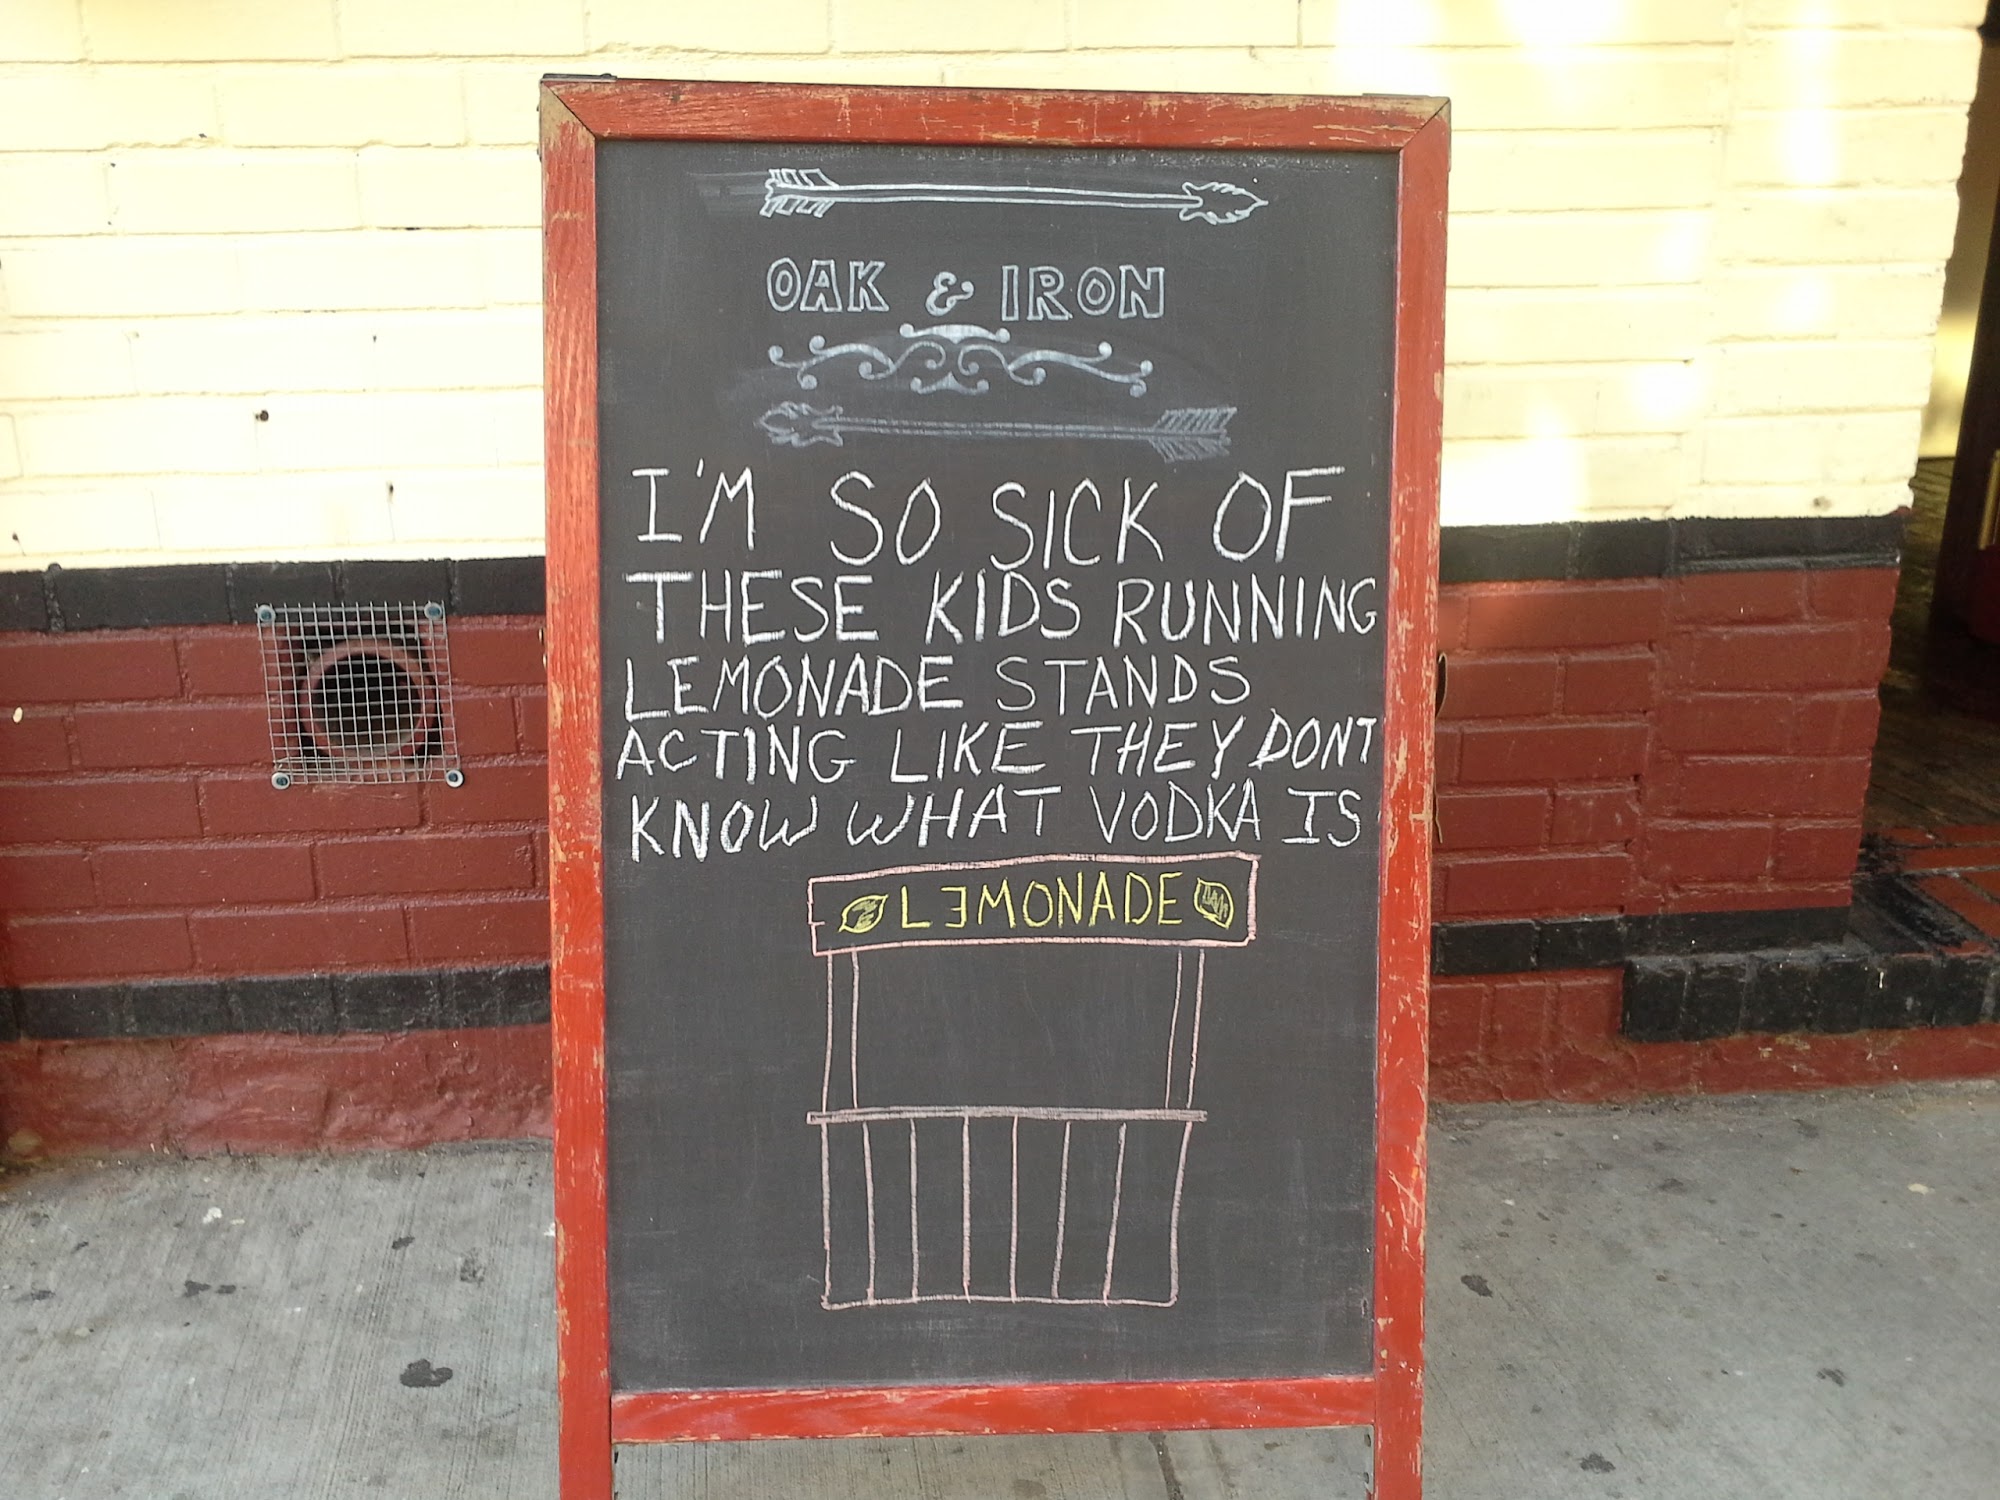 OAK & IRON
I'M SO SICK OF
THESE KIDS RUNNING
LEMONADE STANDS
ACTING LIKE THEY DONT
KNOW WHAT VODKA IS
LƎMONADE